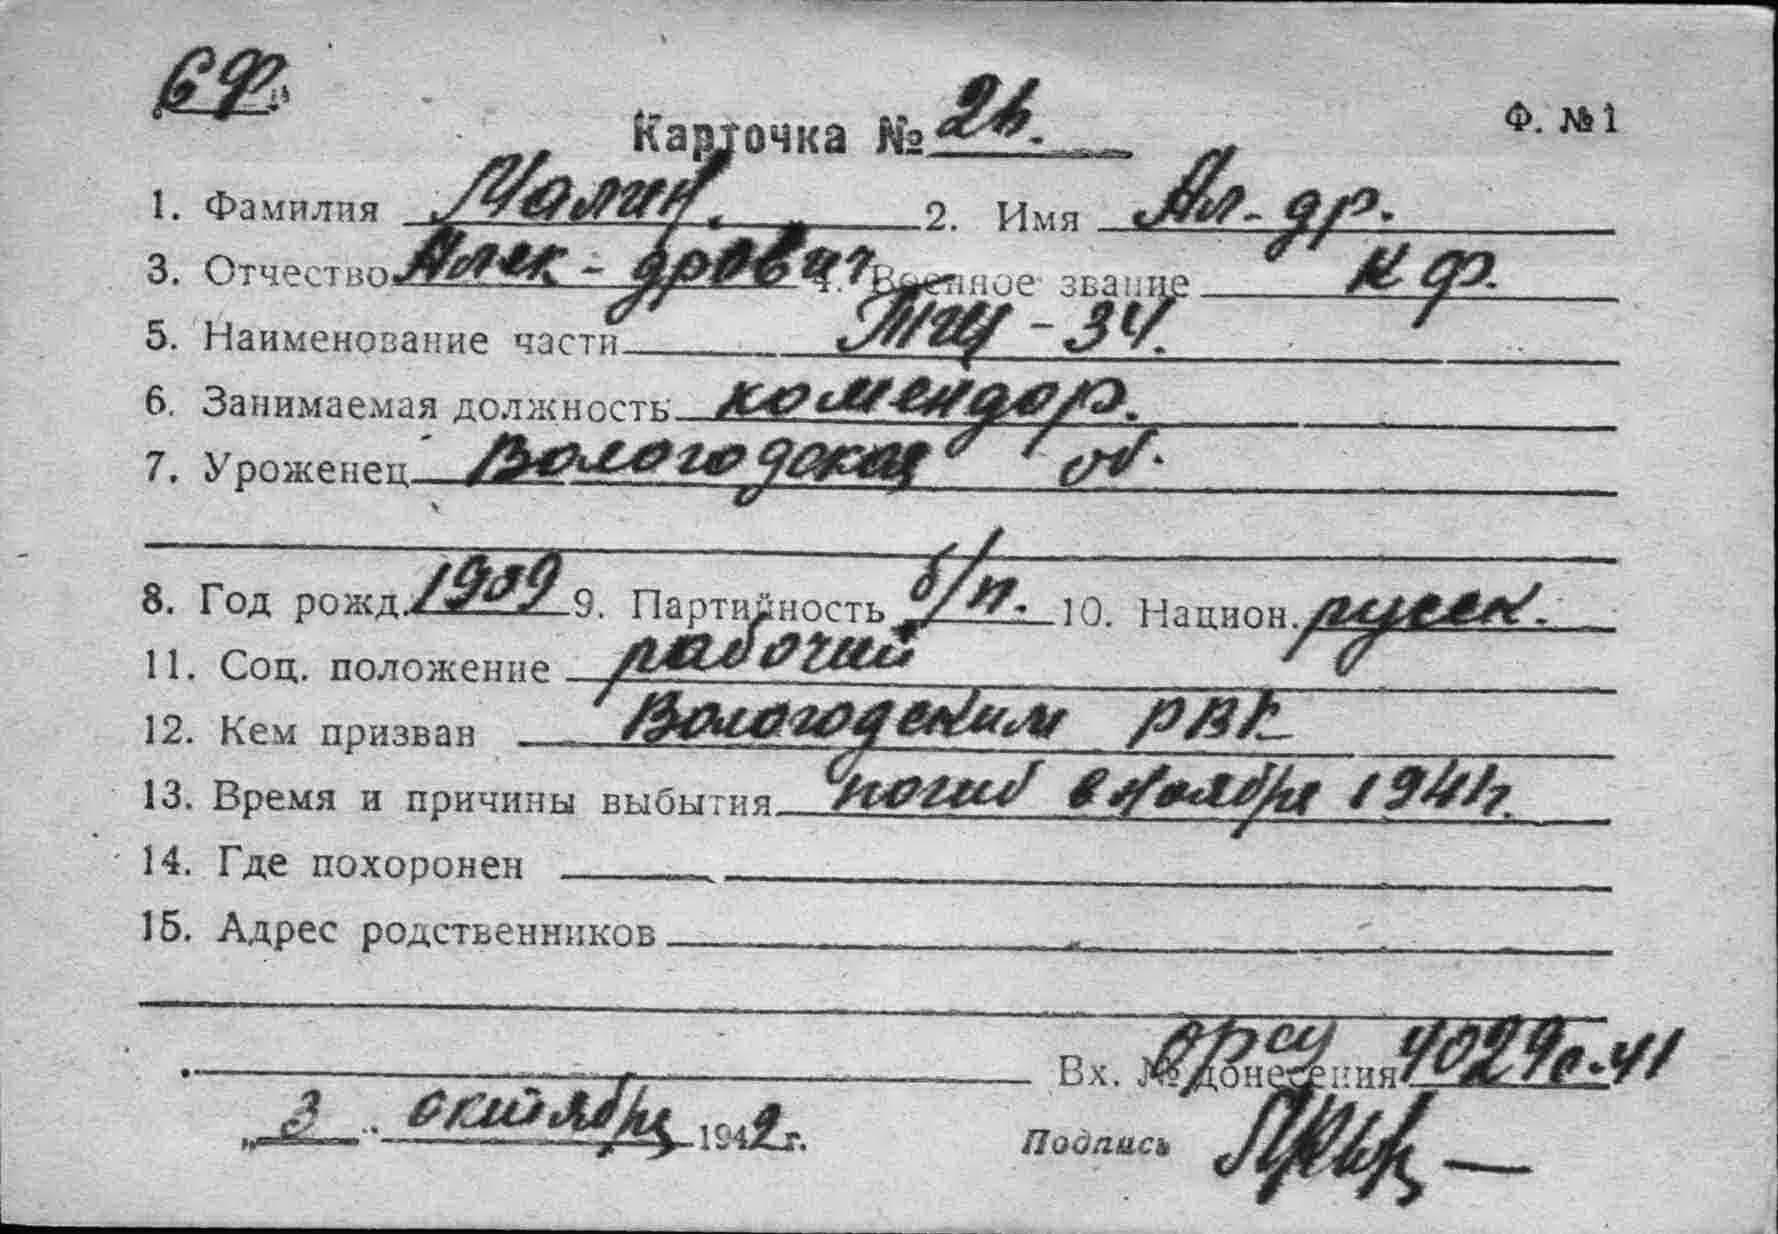 СФ.
Карточка № 2б. Ф. №1
1. Фамилия Малин. 2. Имя Ал-др.
3. Отчество Алек-дрович 4. Военное звание Кф.
5. Наименование части ТЩ-34.
6. Занимаемая должность комендор.
7. Уроженец Вологодская об.
8. Год рожд. 1909 9. Партийность б/п. 10. Национ. русск.
11. Соц. положение рабочий
12. Кем призван Вологодским РВК
13. Время и причины выбытия погиб в ноябре 1941г.
14. Где похоронен
15. Адрес родственников
Вх. № донесения 4029с.41
„3" октября 1942г. Подпись